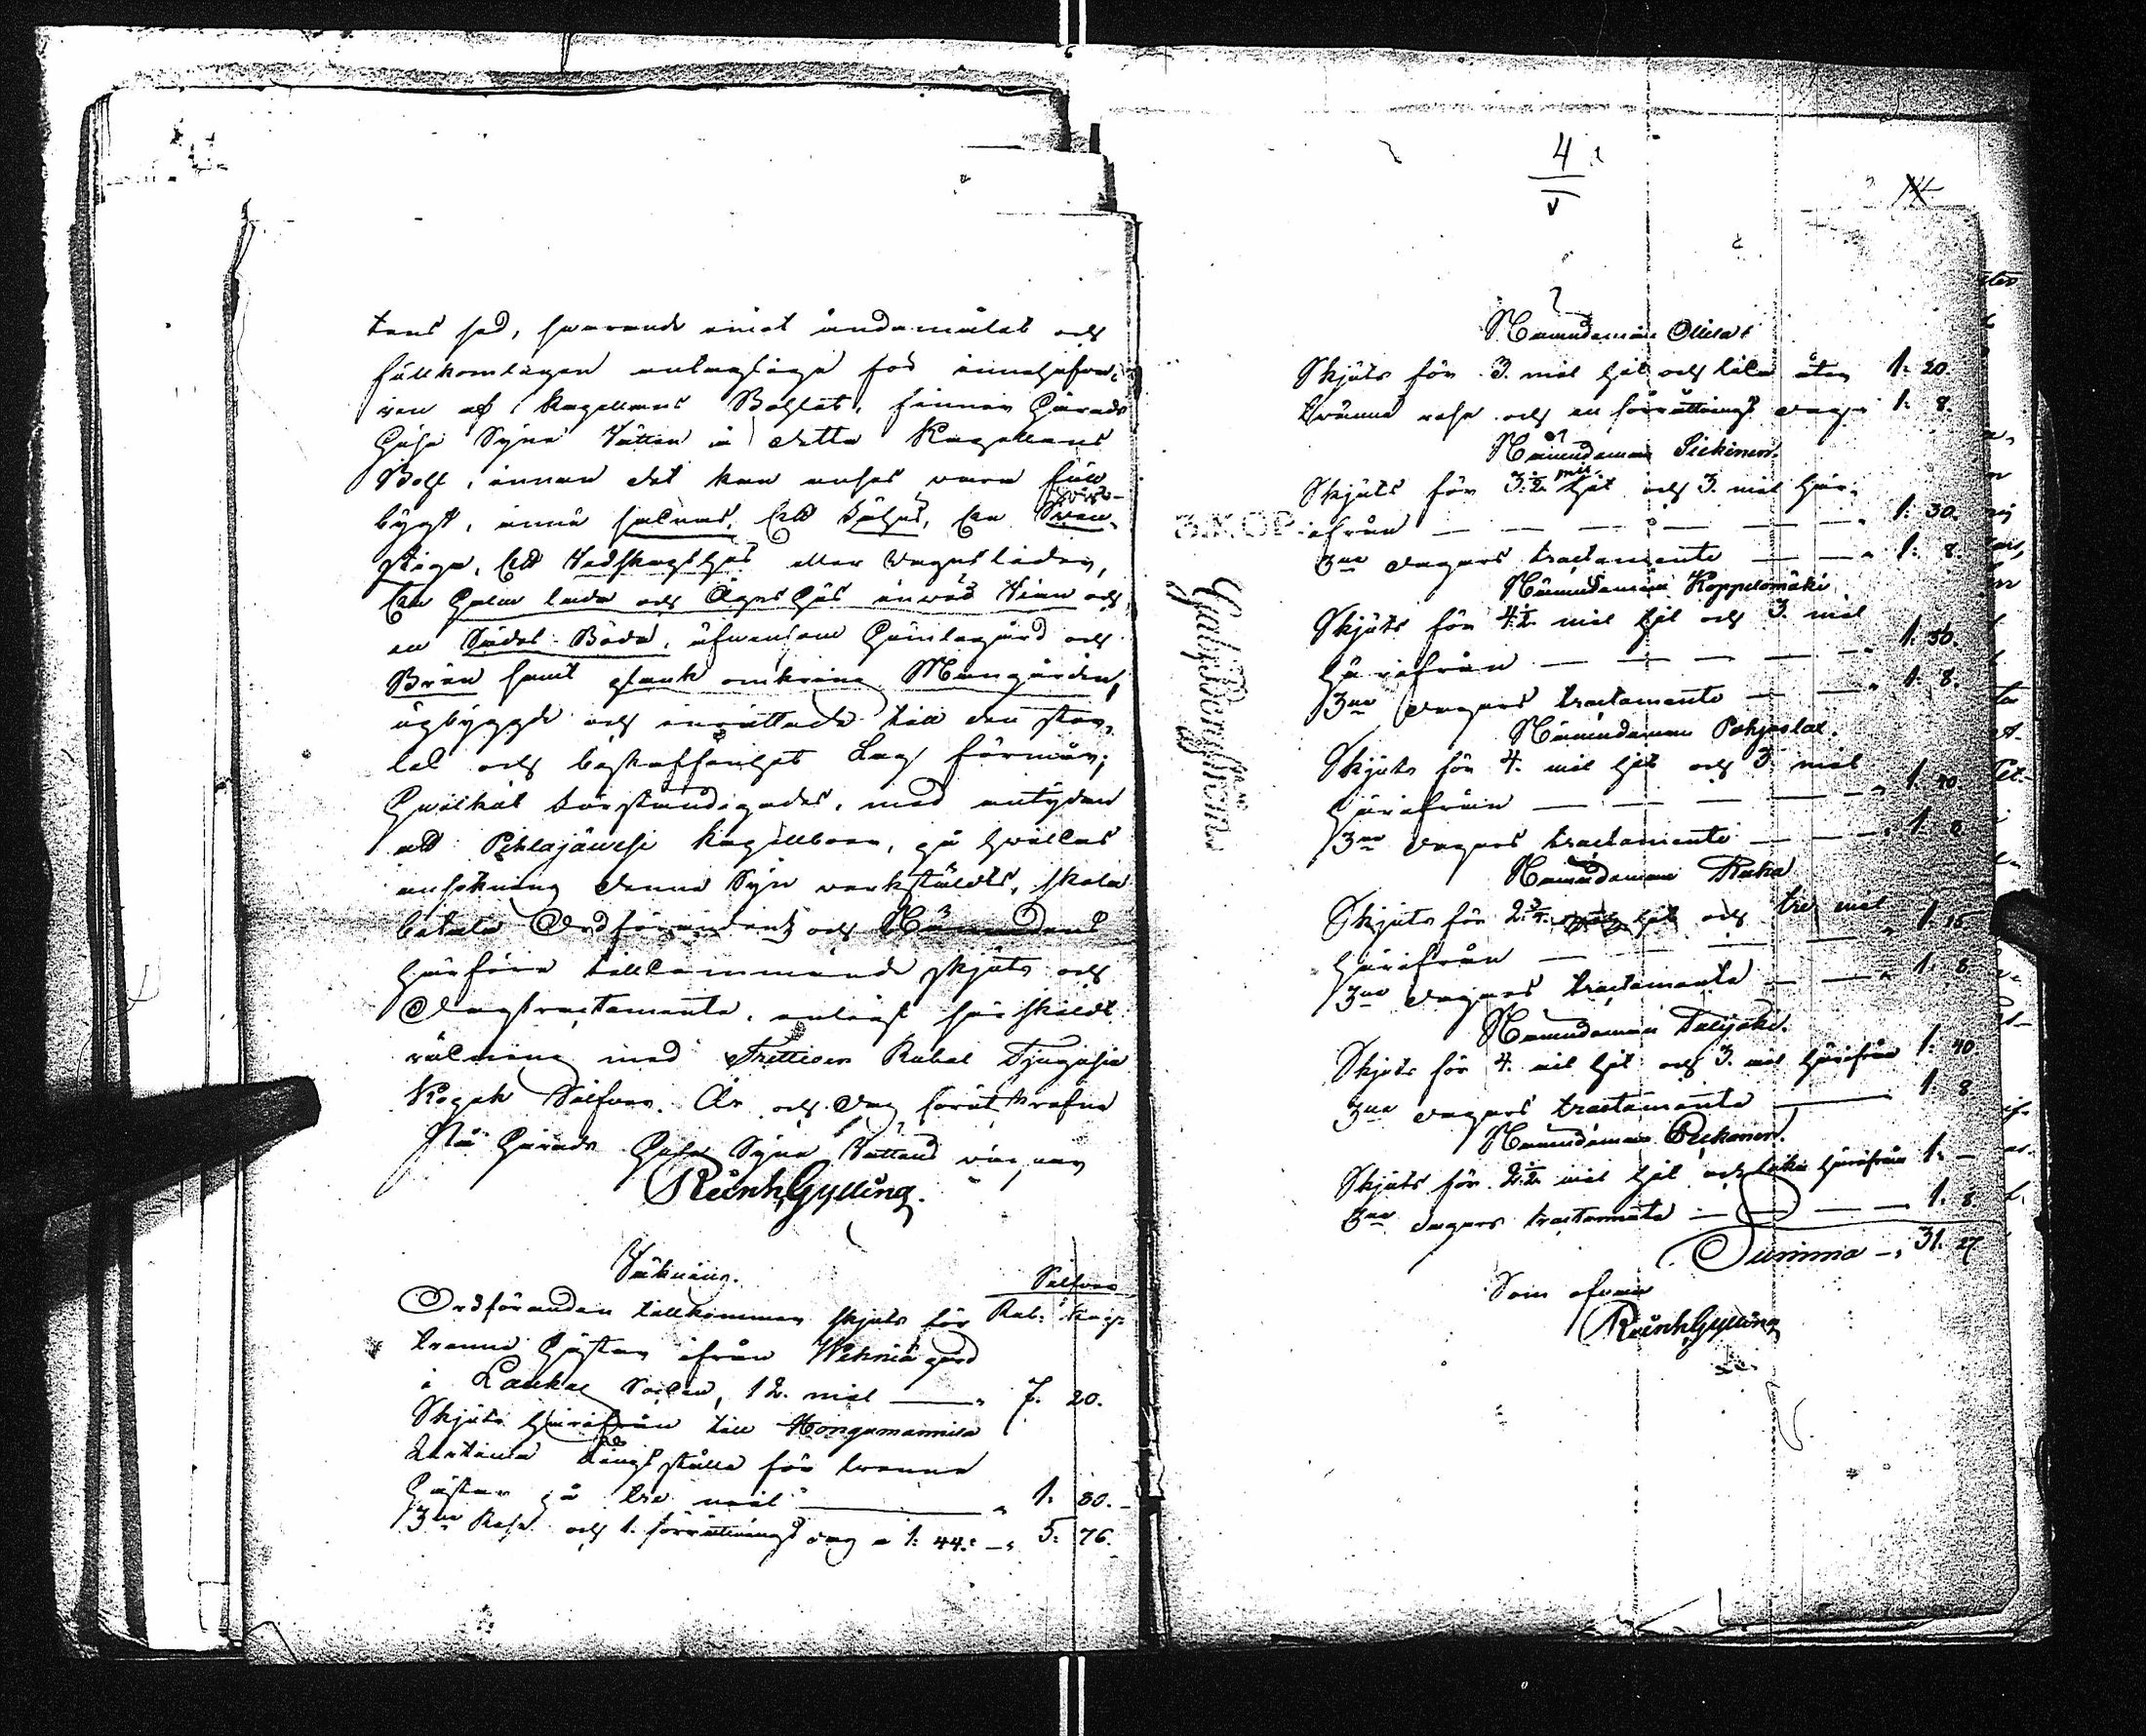 tens hed, svarande emot ändamålet och
fullkomligen antagliga för innehafva-
ren af Kapellans Bohlet, finner Härads
Höfd Syne Rätten å detta Kapellans
Bohl, innan det kan anses vara full
bygt, ännu saknas, Ett Söljus, En Svin-
stiga, Ett Vedskogshus eller Vagnslider,
En Halm lada och Agnshus invid Rian och
en Sädes Boda, äfvensom Humlegård och
Brun samt plank omkring Mangården,
upbygde och inrättade till den stor-
lek och beskaffenhet Lag förmår;
Hvilket kungjordes, med antydan
att Pihlajawesi Kapellboer, på hvilkas
ansökning denna Syn verkstäldts, skola
betala Ordförandens och Nämndens
härföre tillkommande skjuts och
Dagtractamente, enligt särskildt
räkning med Trettioen Rubel Tjugusju
Kopek Silfver. År och dag förutskrefne
På Härads Syne Rättens vägnar
Reinh Gylling.
Räkning.
Silfver
Ordföranden tillkommer skjuts för Rub: Kop:
trenne Hästar ifrån Wehniä gård
i Laukas Socken, 12. mil — 7. 20.
Skjuts härifrån till Hongamannila
tings ställe för trenne
Hästar på tre mil — 1: 80.
3ne Rese och 1. förrättnings dag a 1: 44: — 5: 76.
4
Nämndeman Ollila
Skjuts för 3. mil hit och lika åter 1: 20.
tvänne rese och en förrättnings dag 1: 8.
Nämndeman Siekinen.
Skjuts för 3½ mil hit och 3. mil här-
3. KOP. ifrån — 1: 30.
3ne dagars tractamente — 1: 8.
Nämndeman Koppelomäki
Skjuts för 4½ mil hit och 3. mil
härifrån — 1: 50.
3ne dagars tractamente — 1: 8.
Nämndeman Pohjoslat.
Skjuts för 4. mil hit och 3 mil
härifrån — 1: 40.
3ne dagars tractamente — 1: 8
Nämndeman Ruha
Skjuts för 2¾ hit och tre mil
härifrån — 1: 15
3ne dagars tractamente — 1: 8.
Nämndeman
Skjuts för 4. mil hit och 3. mil härifrån 1: 40.
3ne dagars tractamente — 1: 8
Nämndeman Peckonen.
Skjuts för 2½ mil hit och lika härifrån 1: —
3ne dagars tractamente — 1: 8
Summa — 31. 27
Som ofvan
Reinh Gylling